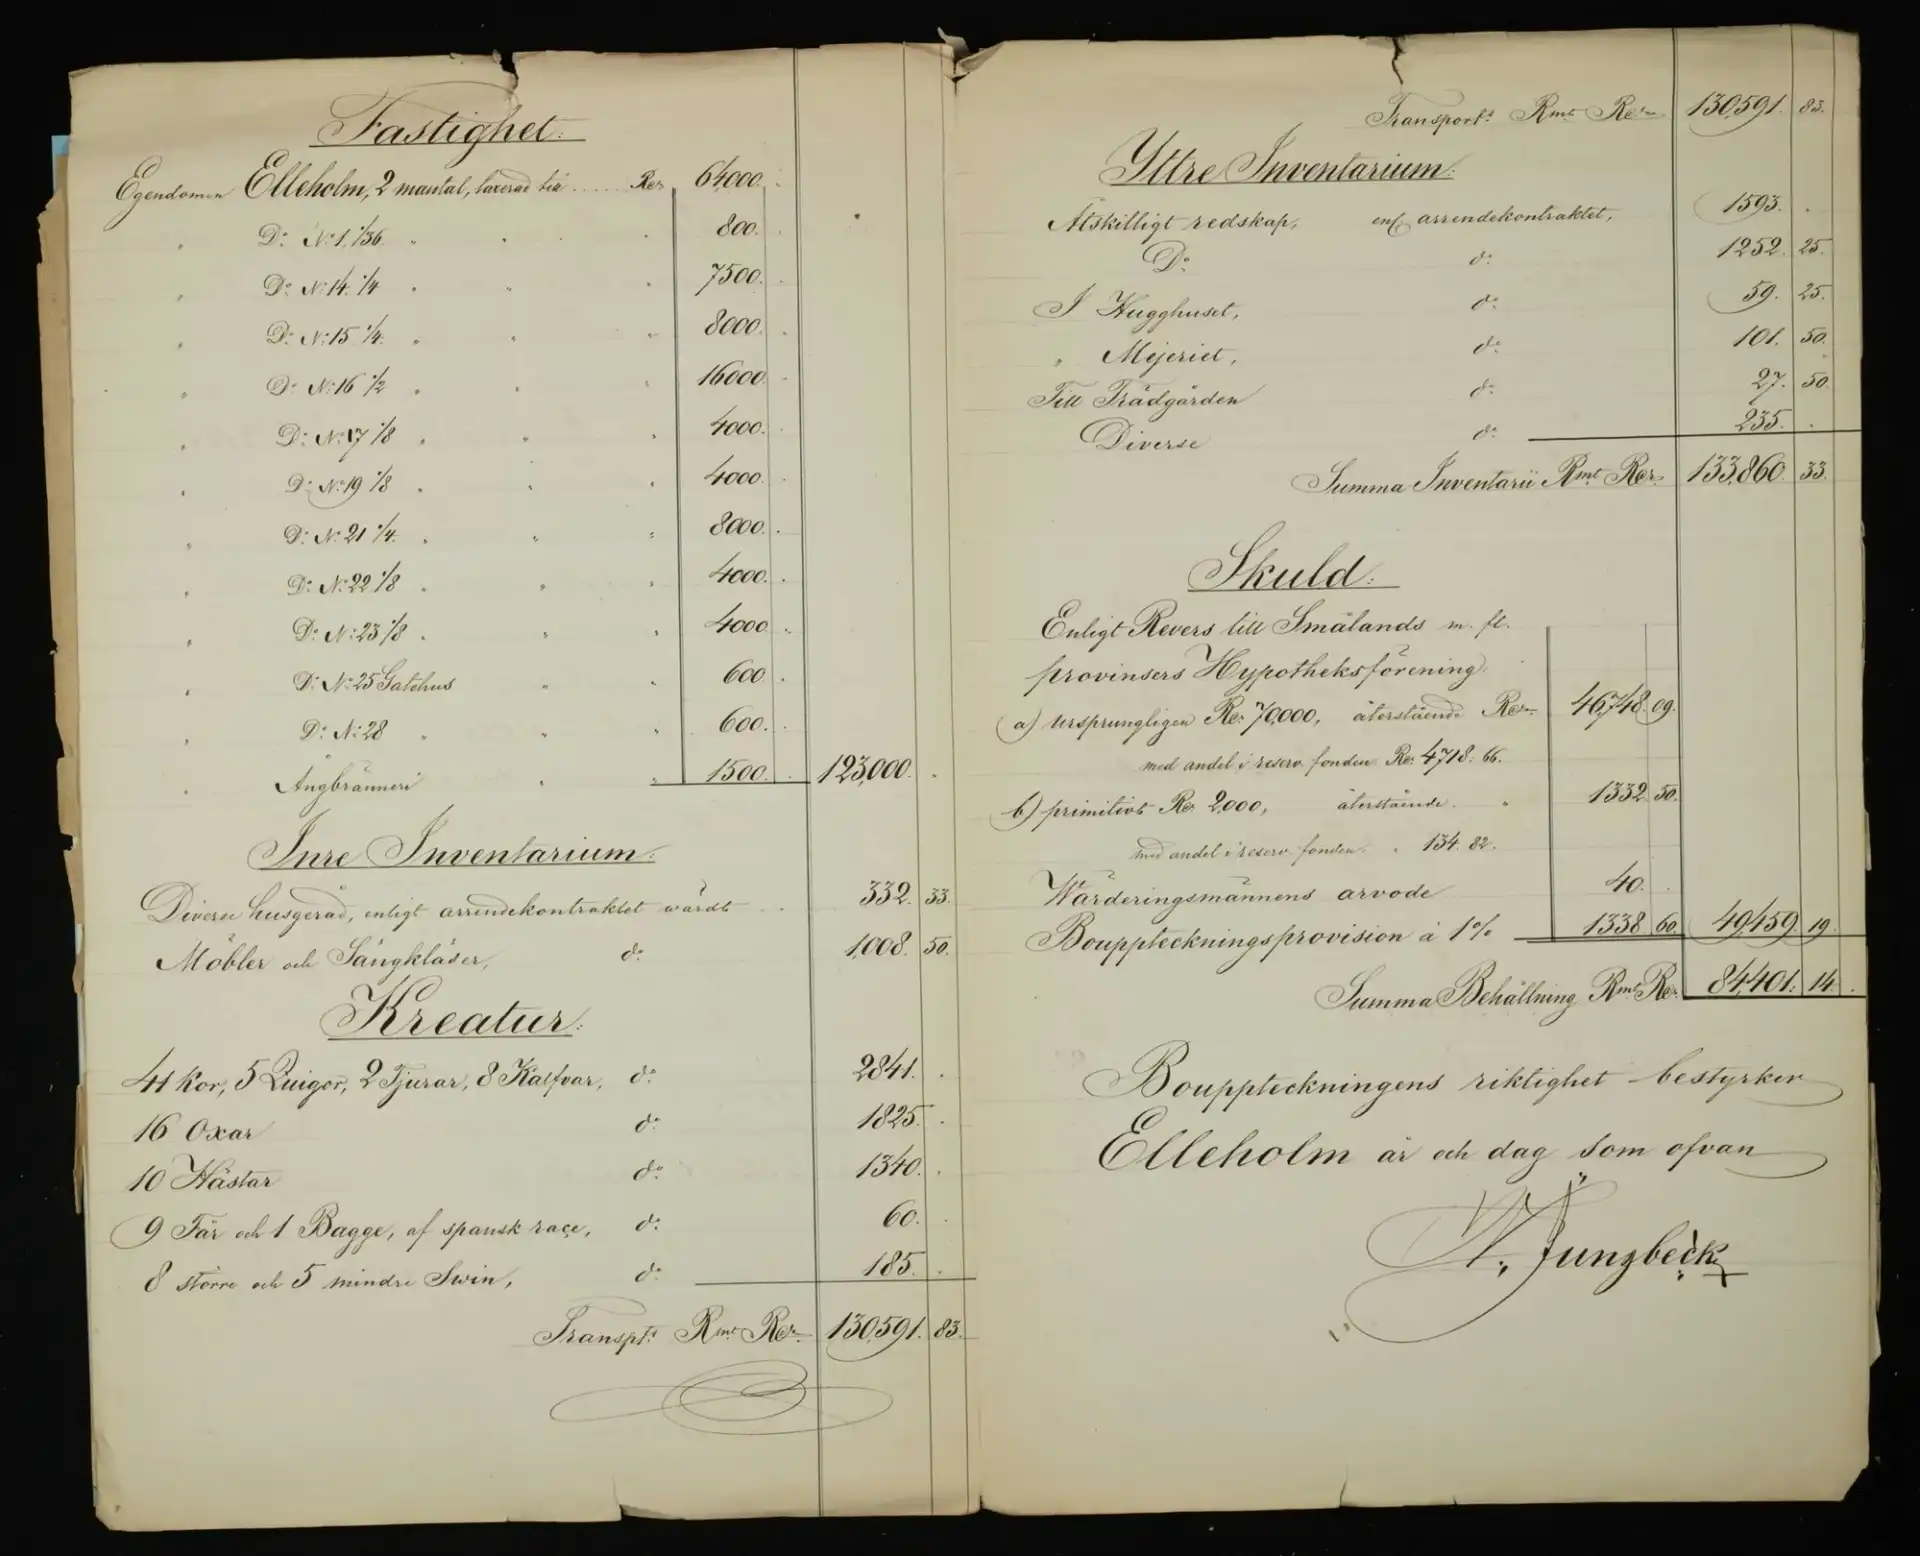 Fastighet:
Egendomen Elleholm, 2 mantal, taxerad till ..... Rdr 64,000.
" Do No 1, 1/36 " " " 800.
" Do No 14 1/4 " " " 7500.
" Do No 15 1/4 " " " 8000.
" Do No 16 1/2 " " " 16000.
" Do No 17 1/8 " " " 4000.
" Do No 19 1/8 " " " 4000.
" Do No 21 1/4 " " " 8000.
" Do No 22 1/8 " " " 4000.
" Do No 23 1/8 " " " 4000.
" Do No 25 Gatehus " " 600.
" Do No 28 " " " 600.
" Ångbränneri " " 1500. 123,000.
Inre Inventarium:
Diverse husgeråd, enligt arrendekontraktet värdt .. 332. 33.
Möbler och Sängkläder, do 1,008. 50.
Kreatur:
41 Kor, 5 Quigor, 2 Tjurar, 8 Kalfvar, do 2841.
16 Oxar do 1825.
10 Hästar do 1340.
9 Får och 1 Bagge, af spansk race, do 60.
8 större och 5 mindre Swin, do 185.
Transpt. Rmt Rdr 130,591. 83.
Transport. Rmt Rdr 130,591. 83.
Yttre Inventarium:
Åtskilligt redskap, enl. arrendekontraktet, 1593.
Do do 1252. 25.
I Hugghuset, do 59. 25.
" Mejeriet, do 101. 50.
Till Trädgården do 27. 50.
Diverse do 235.
Summa Inventarii Rmt Rdr 133,860. 33.
Skuld:
Enligt Revers till Smålands m. fl.
provinsers Hypotheksförening:
a) ursprungligen Rdr 70,000, återstående Rdr 46,748. 09.
med andel i reserv. fonden Rdr 4718: 66.
b) primitivt Rdr 2,000, återstående " 1332. 50.
med andel i reserv. fonden " 134. 82.
Wärderingsmännens arvode 40.
Bouppteckningsprovision à 1% 1338. 60. 49,459. 19.
Summa Behållning Rmt Rdr 84,401. 14.
Bouppteckningens riktighet bestyrker
Elleholm år och dag som ofvan
Jungbeck